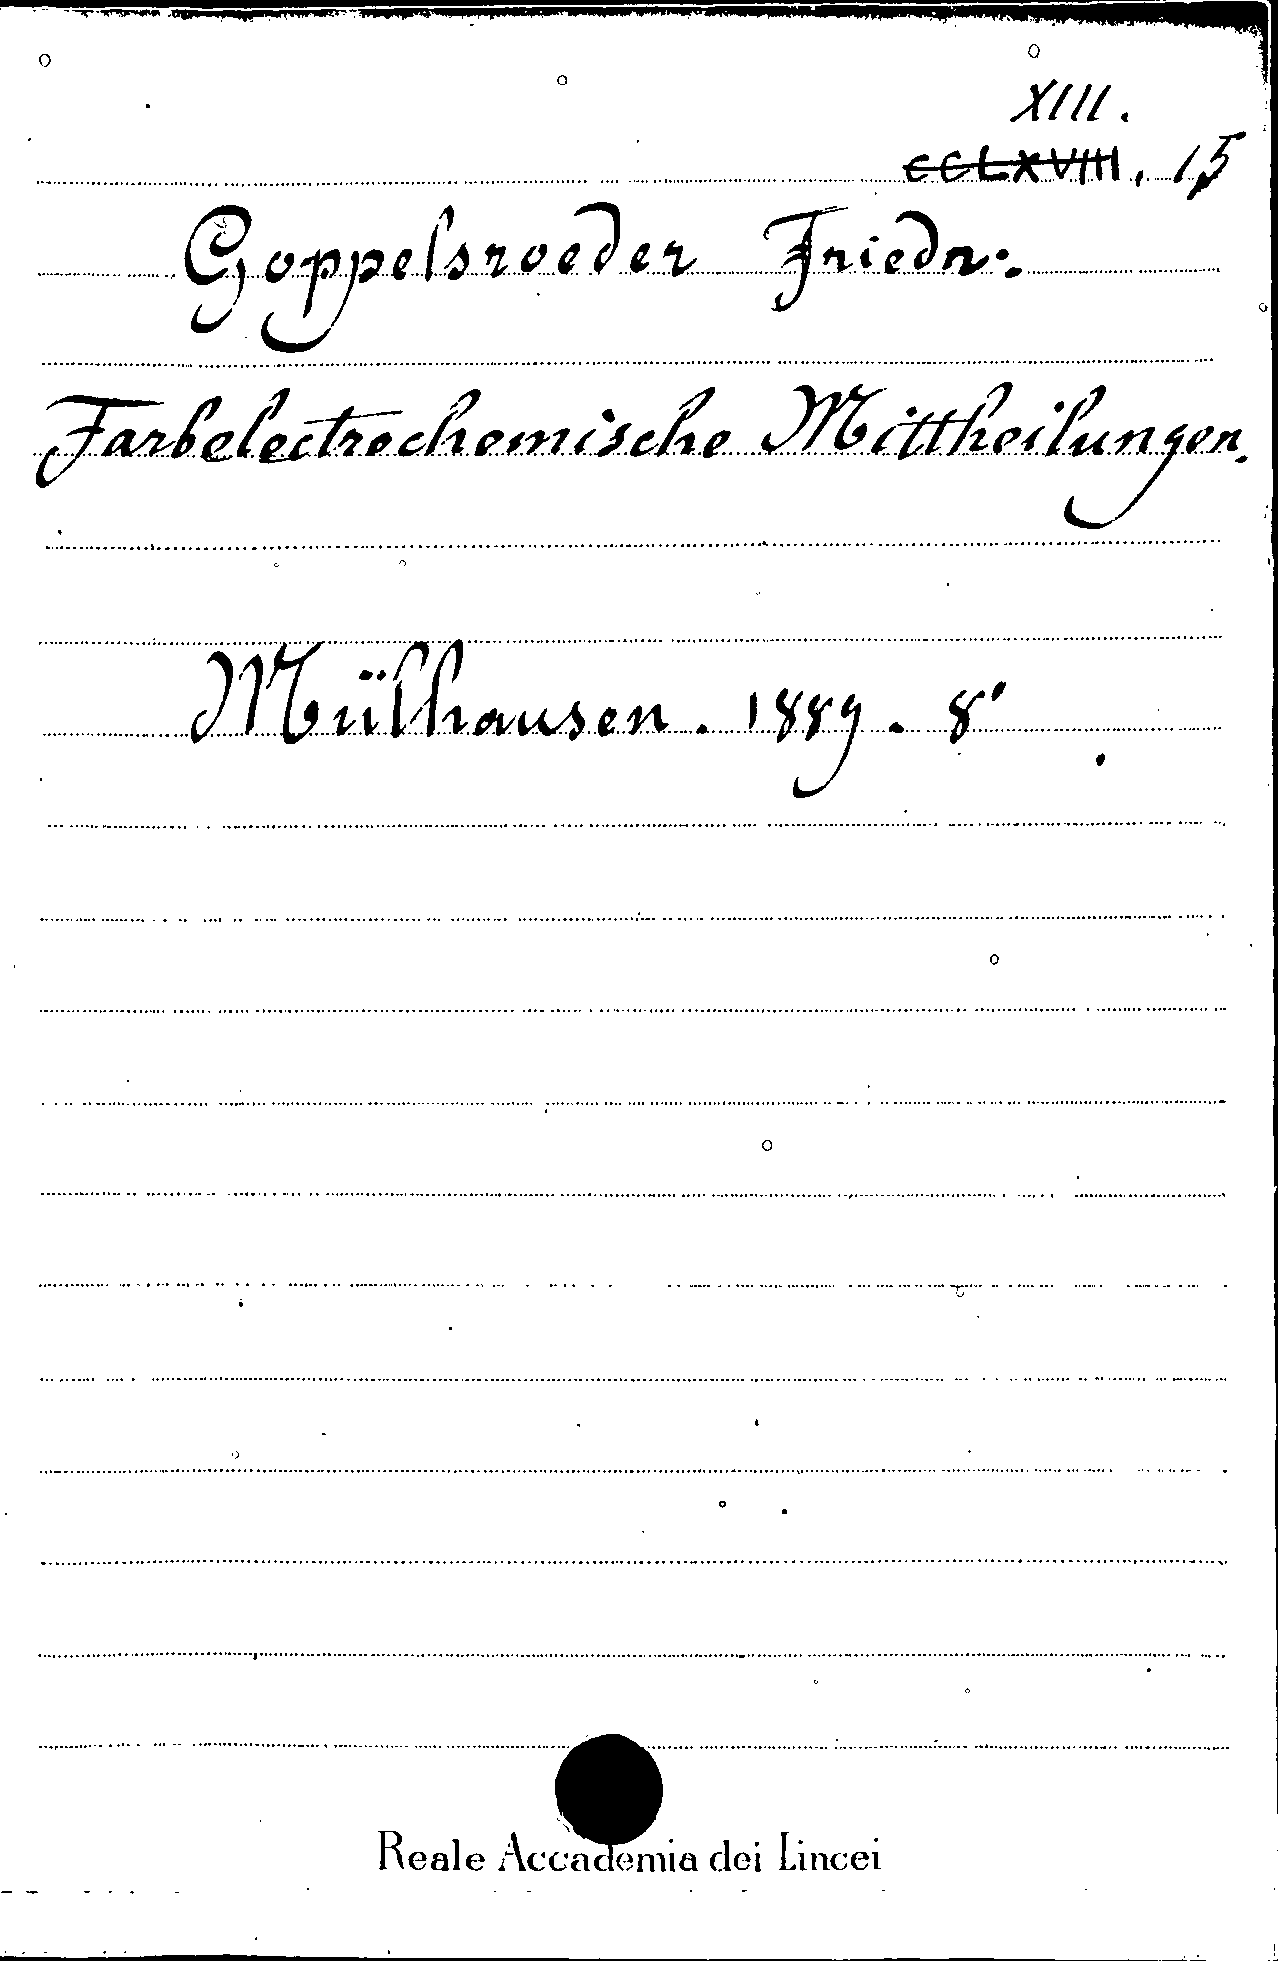 XIII.
CCLXVIII. 15
Goppelsroeder Friedr.
Farbelectrochemische Mittheilungen.
Mülhausen. 1889. 8°
Reale Accademia dei Lincei